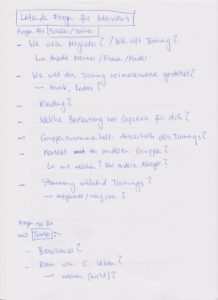 Leitende Fragen für Interviews
Fragen für Schüler / Trainer
- Wie viele Mitglieder? / Wie oft Training?
↳ Anzahl Männer / Frauen / Kinder
- Wie wird das Training normalerweise gestaltet?
→ Musik, Rodas?
- Kleidung?
- Welche Bedeutung hat Capoeira für dich?
- Gruppenzusammenhalt ausserhalb des Trainings?
- Kontakt zu anderen Gruppen?
↳ mit welchen?
- Stimmung während Trainings?
→ aufgeweckt / ruhig / etc.?
Fragen nur für
→ Trainer
- Brasilianer?
- Kann von C. leben?
→ warum (nicht)?